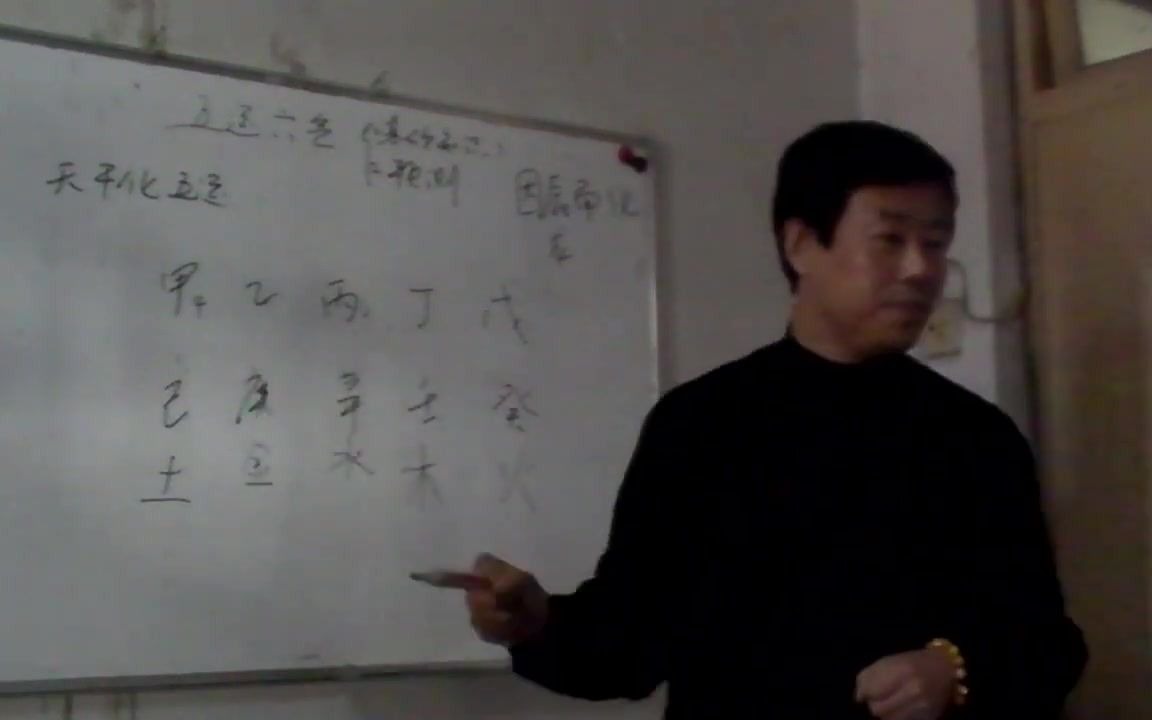 五运六气
预测
天干化五运
因象而化
甲 乙 丙 丁 戊
己 庚 辛 壬 癸
土 金 水 木 火